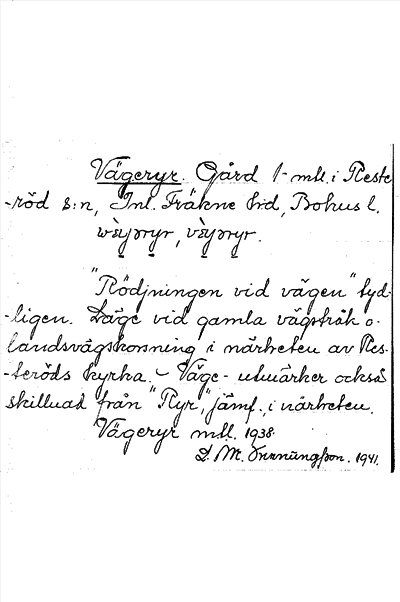 Vägeryr. Gård 1 mtl. i Reste
-röd s:n, Inl. Fräkne hrd, Bohus l.
"Rödjningen vid vägen" tyd-
-ligen. Läge vid gamla vägstråk o.
landsvägskorsning i närheten av Res-
-teröds kyrka. - Väge- utmärker också
skillnad från "Ryr," jämf. i närheten.
Vägeryr mtl. 1938.
D. M. 1941.